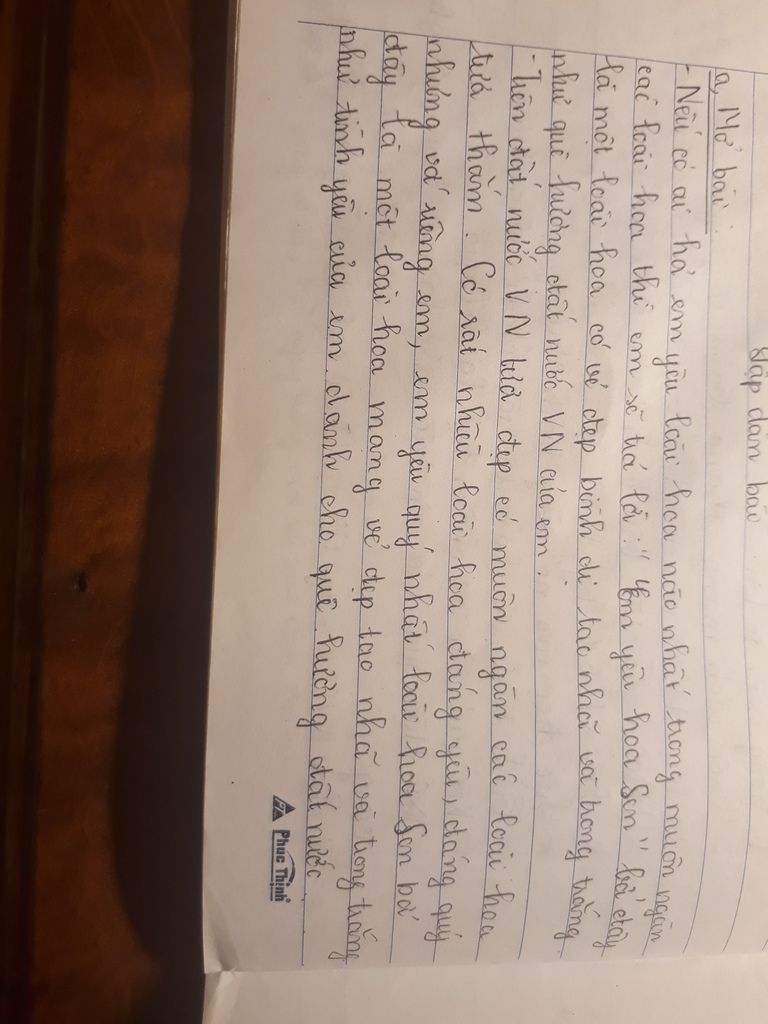 Lập dàn bài
a, Mở bài:
- Nếu có ai hỏ em yêu loài hoa nào nhất trong muôn ngàn
các loài hoa thì em sẽ trả lời: "Em yêu hoa Sen" bởi đây
là một loài hoa có vẻ đẹp bình dị tao nhã và trong trắng
như quê hương đất nước VN của em.
- Trên đất nước VN tươi đẹp có muôn ngàn các loài hoa
tươi thắm. Có rất nhiều loài hoa đáng yêu, đáng quý
nhưng với riêng em, em yêu quý nhất loài hoa Sen bởi
đây là một loài hoa mang vẻ đẹp tao nhã và trong trắng
như tình yêu của em dành cho quê hương đất nước.
Phuc Thịnh